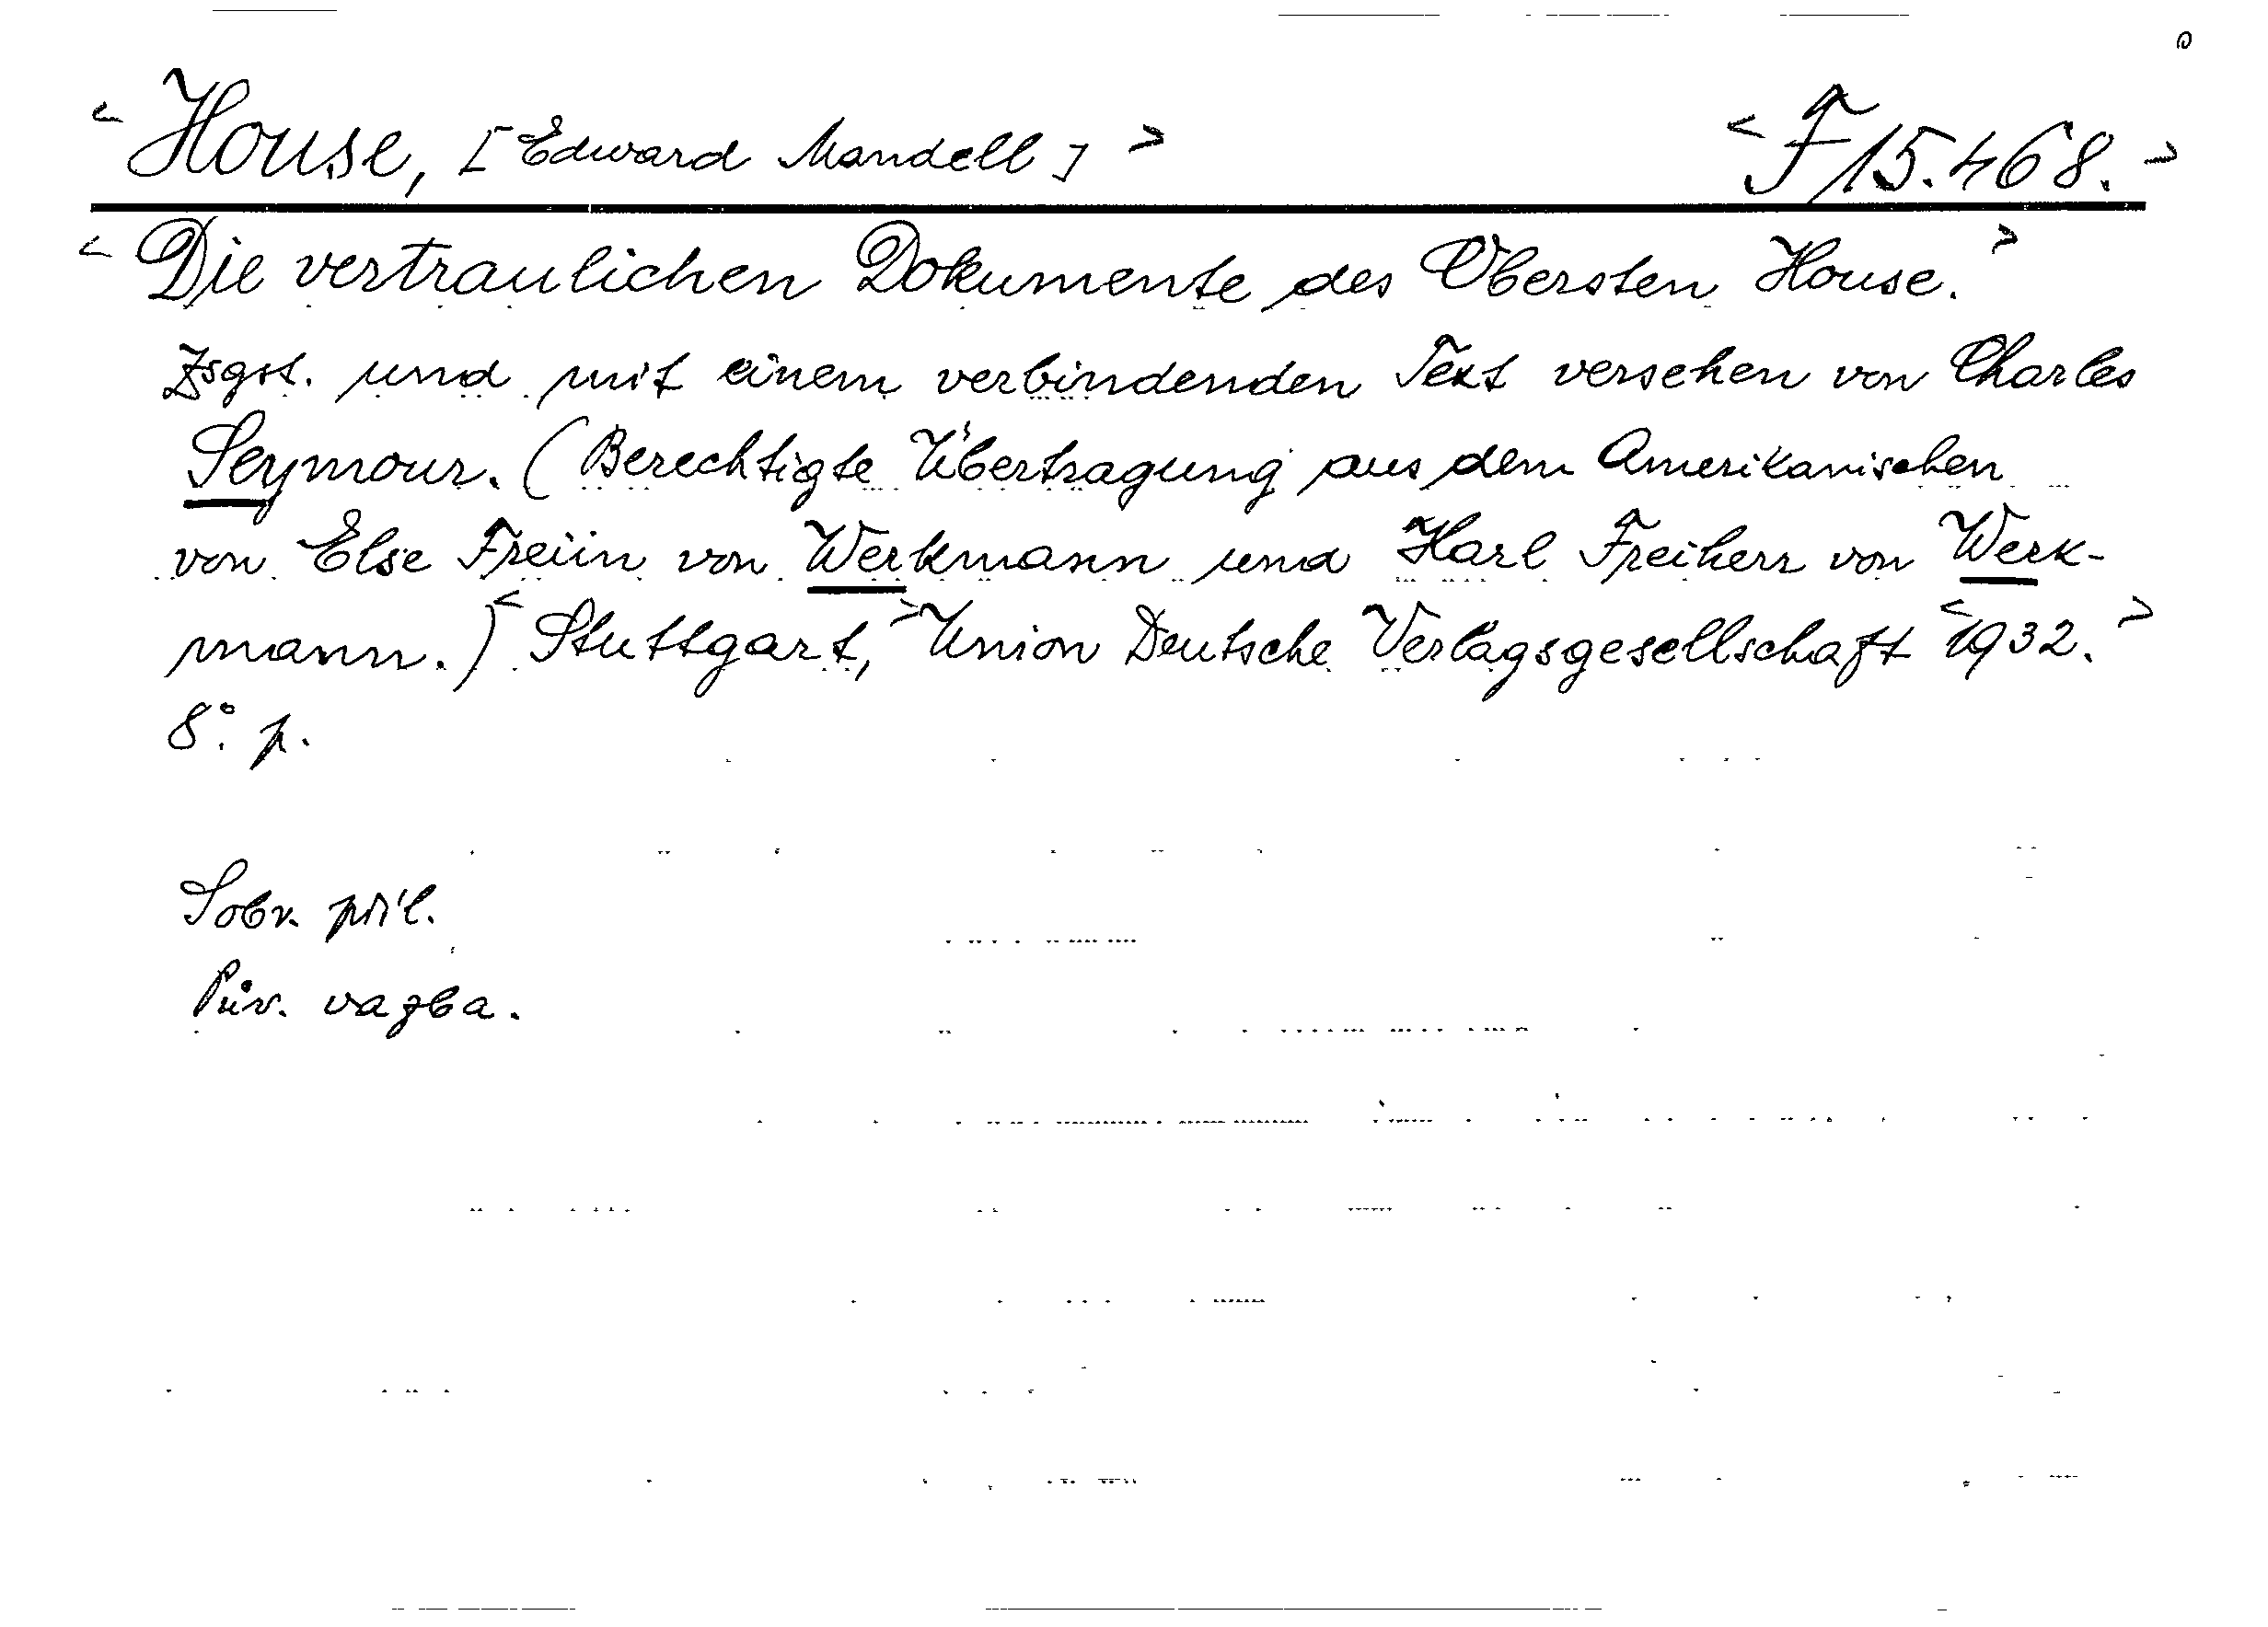 < House, [Edward Mandell] > < F 15.468. >
< Die vertraulichen Dokumente des Obersten House. >
Zsgst. und mit einem verbindenden Text versehen von Charles
Seymour. (Berechtigte Übertragung aus dem Amerikanischen
von Else Freiin von Werkmann und Karl Freiherr von Werk-
mann.) < Stuttgart, > Union Deutsche Verlagsgesellschaft < 1932. >
8°. p.
Sobr. příl.
Pův. vazba.